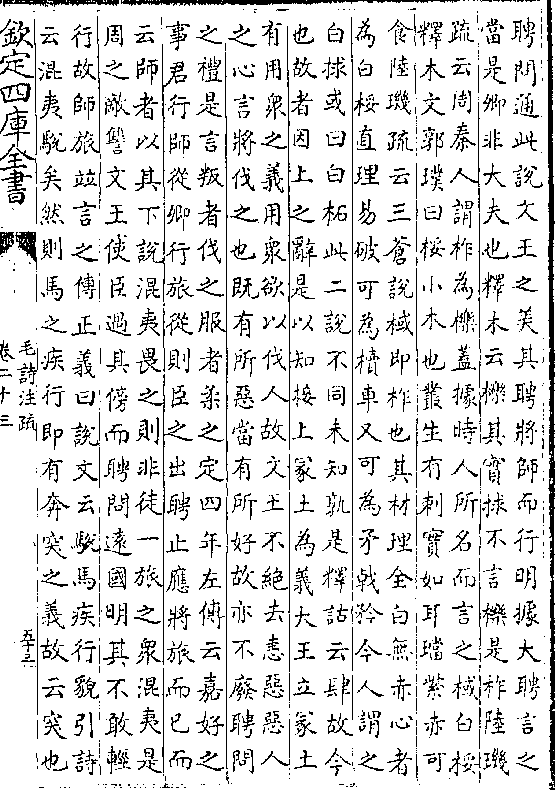 聘問通此說文王之美其聘將師而行明據大聘言之
當是卿非大夫也釋木云櫟其實捄不言櫟是柞陸璣
疏云周秦人謂柞為櫟蓋據時人所名而言之棫白桵
釋木文郭璞曰桵小木也叢生有刺實如耳璫紫赤可
食陸璣疏云三蒼說棫即柞也其材理全白無赤心者
為白桵直理易破可為櫝車又可為矛戟矜今人謂之
白捄或曰白柘此二說不同未知孰是釋詁云肆故今
也故者因上之辭是以知接上冢土為義大王立冢土
有用衆之義用衆欲以伐人故文王不絶去恚惡惡人
之心言將伐之也既有所惡當有所好故亦不廢聘問
之禮是言叛者伐之服者柔之定四年左傳云嘉好之
事君行師從卿行旅從則臣之出聘止應將旅而已而
云師者以其下說混夷畏之則非徒一旅之衆混夷是
周之敵讐文王使臣過其傍而聘問遠國明其不敢輕
行故師旅竝言之傳正義曰說文云駾馬疾行貌引詩
云混夷駾矣然則馬之疾行即有奔突之義故云突也
欽定四庫全書
毛詩注疏
卷二十三
五十三